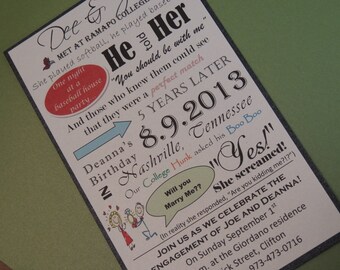 Dee &
MET AT RAMAPO COLLEGE
She played softball, he played baseball
One night at a baseball house party
He told Her
"You should be with me"
And those who knew them could see
that they were a perfect match
5 YEARS LATER
Deanna's Birthday
8.9.2013
IN Nashville, Tennessee
Our College Hunk asked his Boo Boo
Will you
Marry Me??
"Yes!"
She screamed!
(In reality she responded, "Are you kidding me?!?")
JOIN US AS WE CELEBRATE THE
ENGAGEMENT OF JOE AND DEANNA!
On Sunday September 1st
at the Giordano residence
Street, Clifton
973-473-0716